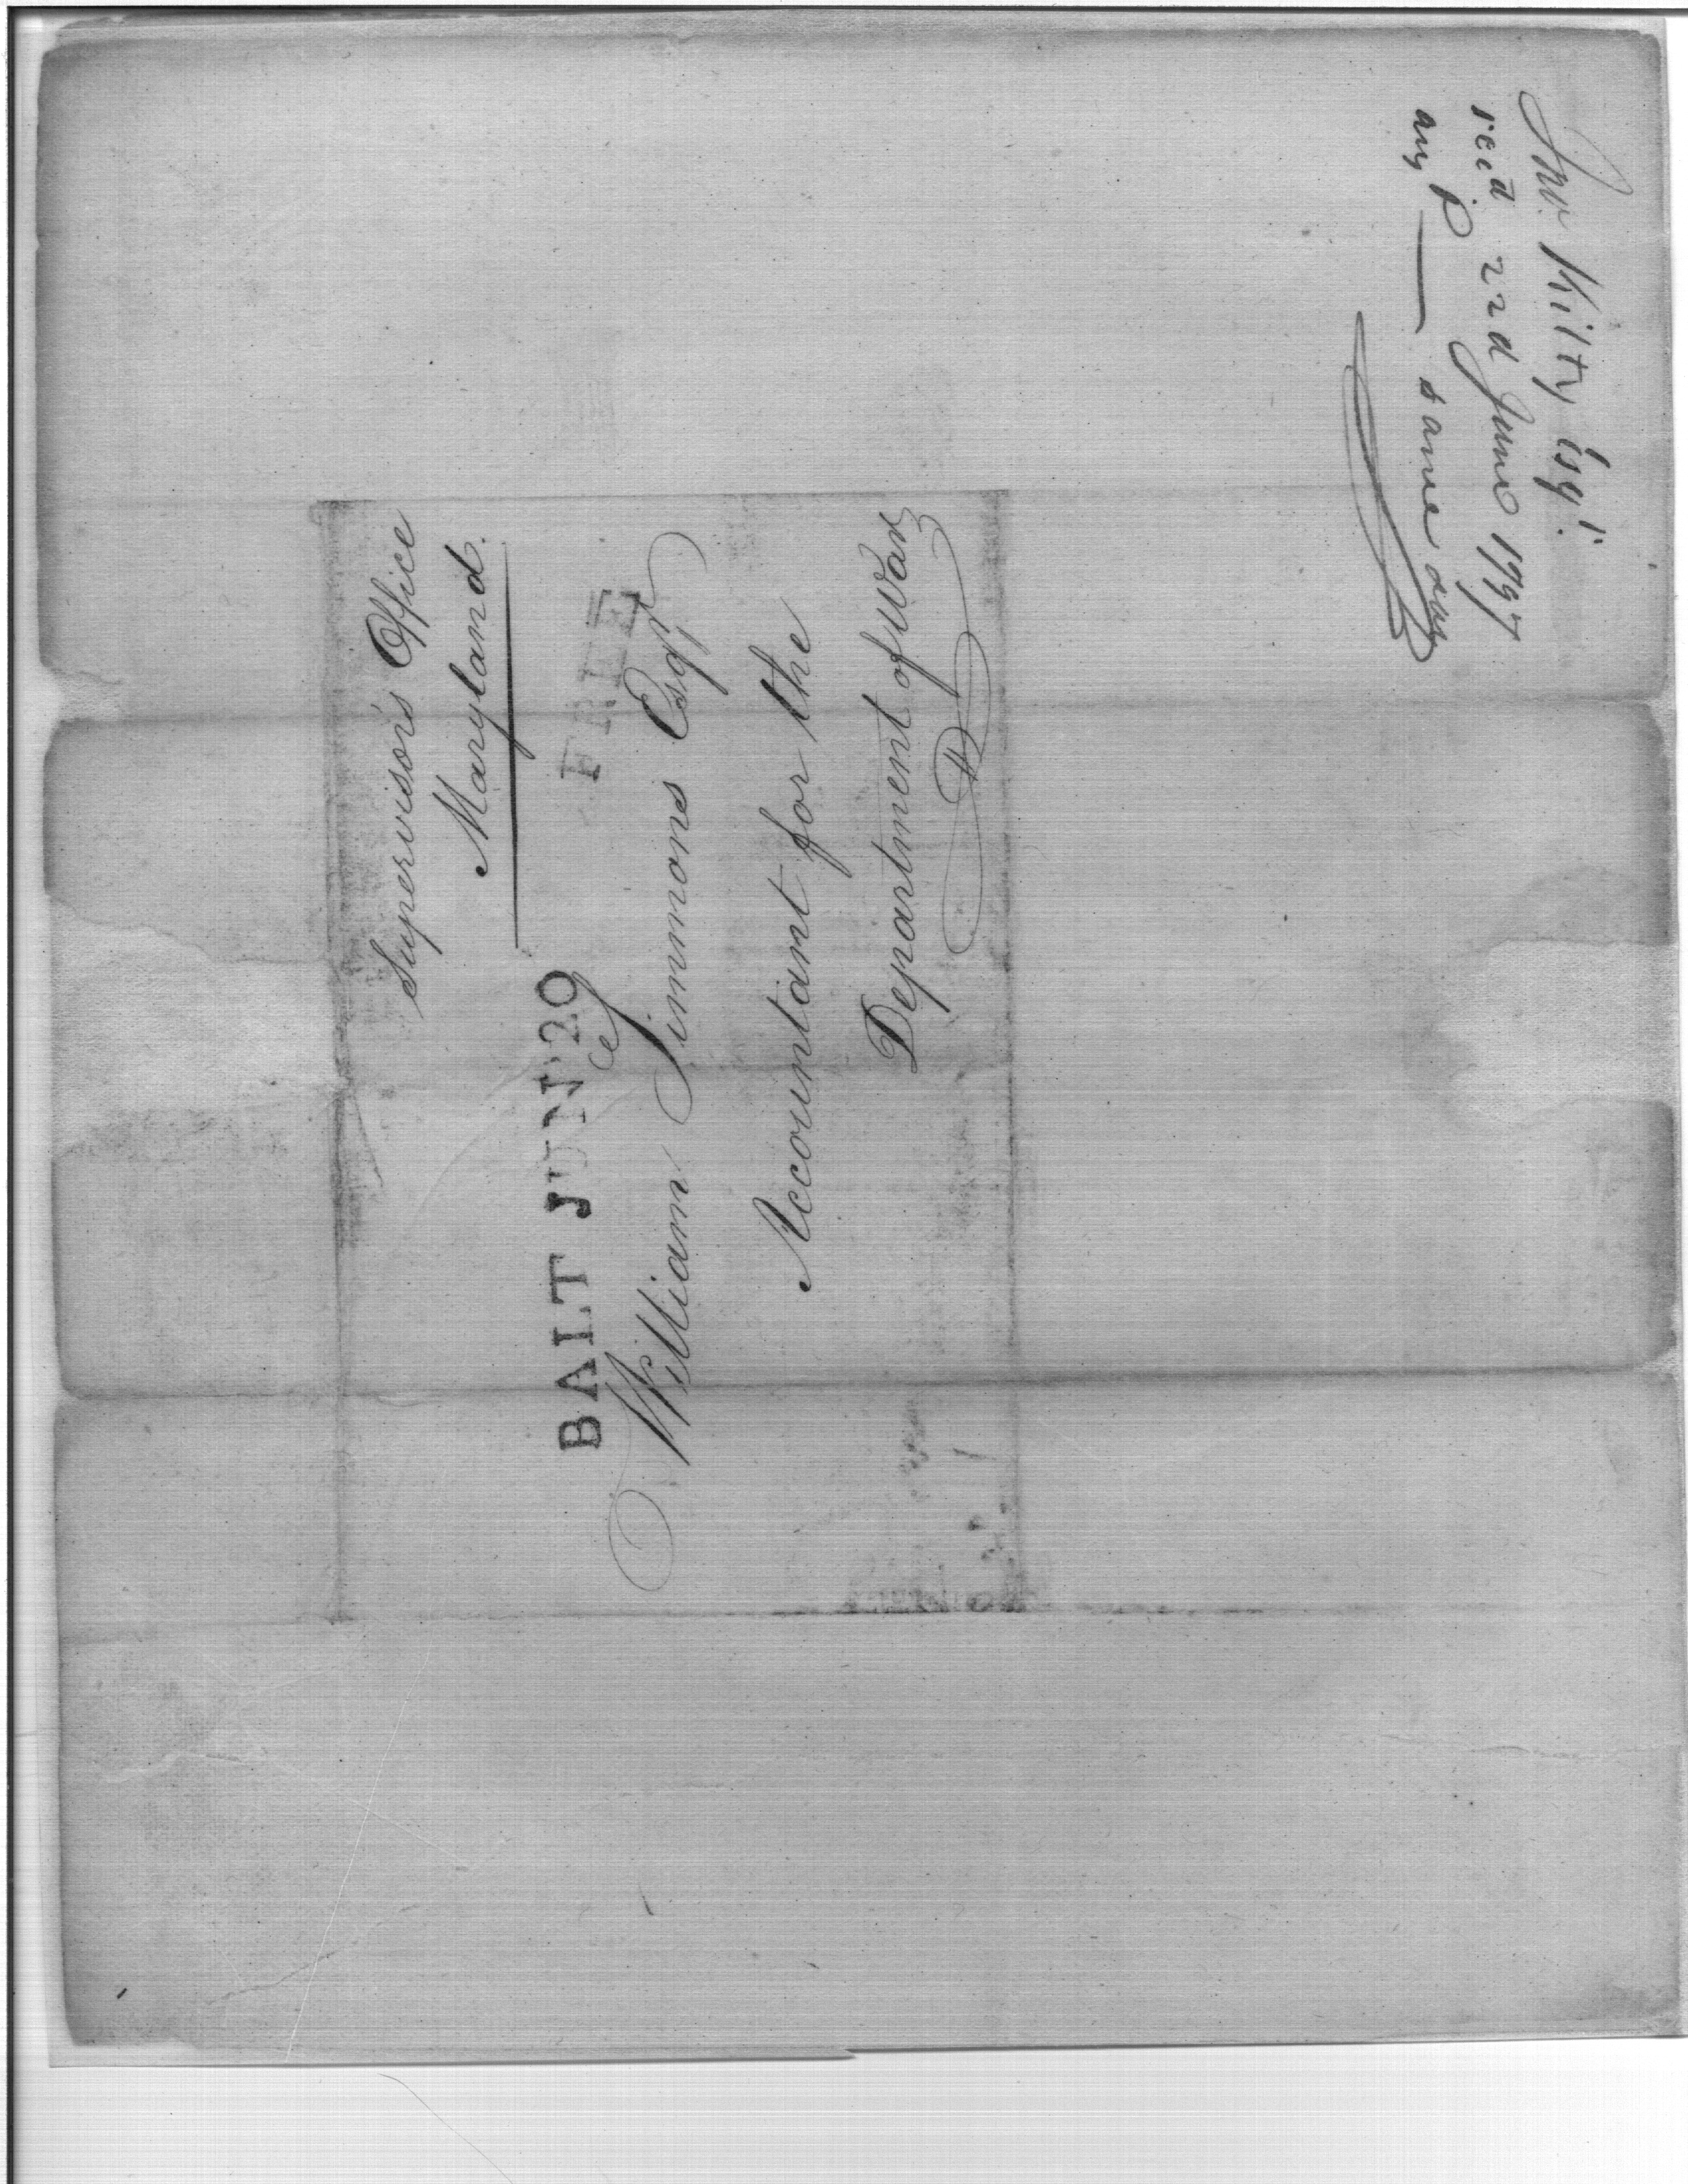 Supervisors Office
Maryland.
BALT JUN 20
FREE
William Simmons Esqr
Accountant for the
Department of War
Jno. Kilty Esqr.
recd 22d June 1797
ansd. — same day